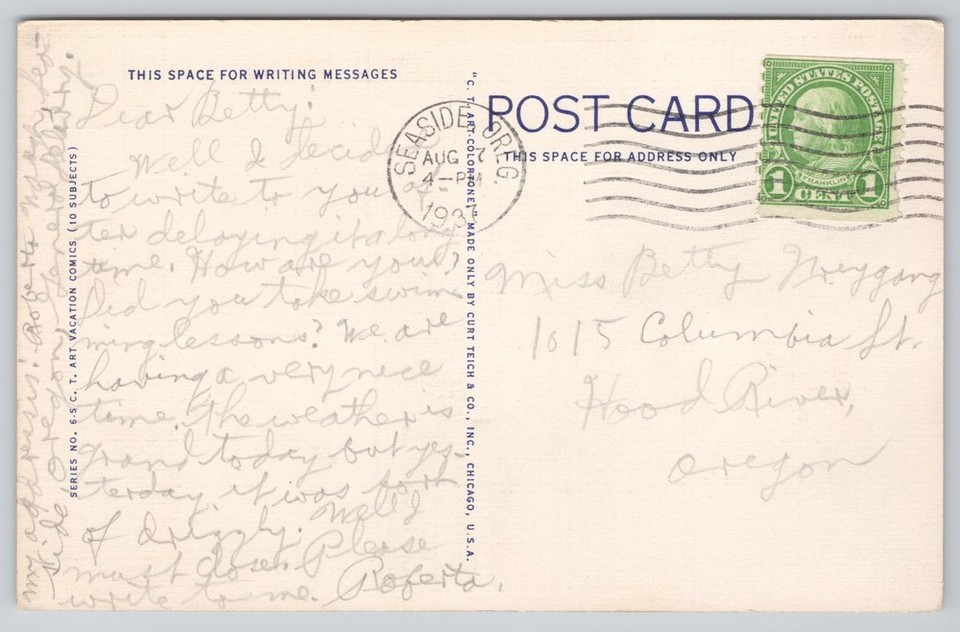 THIS SPACE FOR WRITING MESSAGES
Dear Betty:
Well I decid
to write to you af-
ter delaying it a long
time. How are you?
Did you take swim-
ming lessons? We are
having a very nice
time. The weather is
grand today but yes-
terday it was sort
of drizzly. Well I
must close. Please
write to me. Roberta.
my address is: Roberta
side, Oregon, General Delivery.
SERIES NO. 6-S C. T. ART VACATION COMICS (10 SUBJECTS)
"C. T. ART-COLORTONE" MADE ONLY BY CURT TEICH & CO., INC., CHICAGO, U.S.A.
POST CARD
THIS SPACE FOR ADDRESS ONLY
SEASIDE, OREG.
AUG 7
4-PM
193
UNITED STATES POSTAGE
FRANKLIN
1 CENT 1
Miss Betty
1015 Columbia St.
Hood River,
Oregon